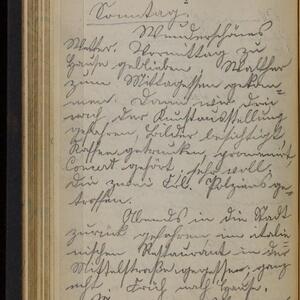 Sonntag.
Wunderschönes
Wetter. Vormittag zu
Hause geblieben. Walther
zum Mittagessen gekom-
men. Dann wir drei
nach der Kunstausstellung
gefahren, Bilder besichtigt
Kaffee getrunken, promenirt,
Concert gehört, sehr voll;
die ge-
troffen.
Abends in die Stadt
zurück gefahren im italie-
nischen Restaurant in der
Mittelstraße gegessen, ganz
nett. Früh nach Hause.